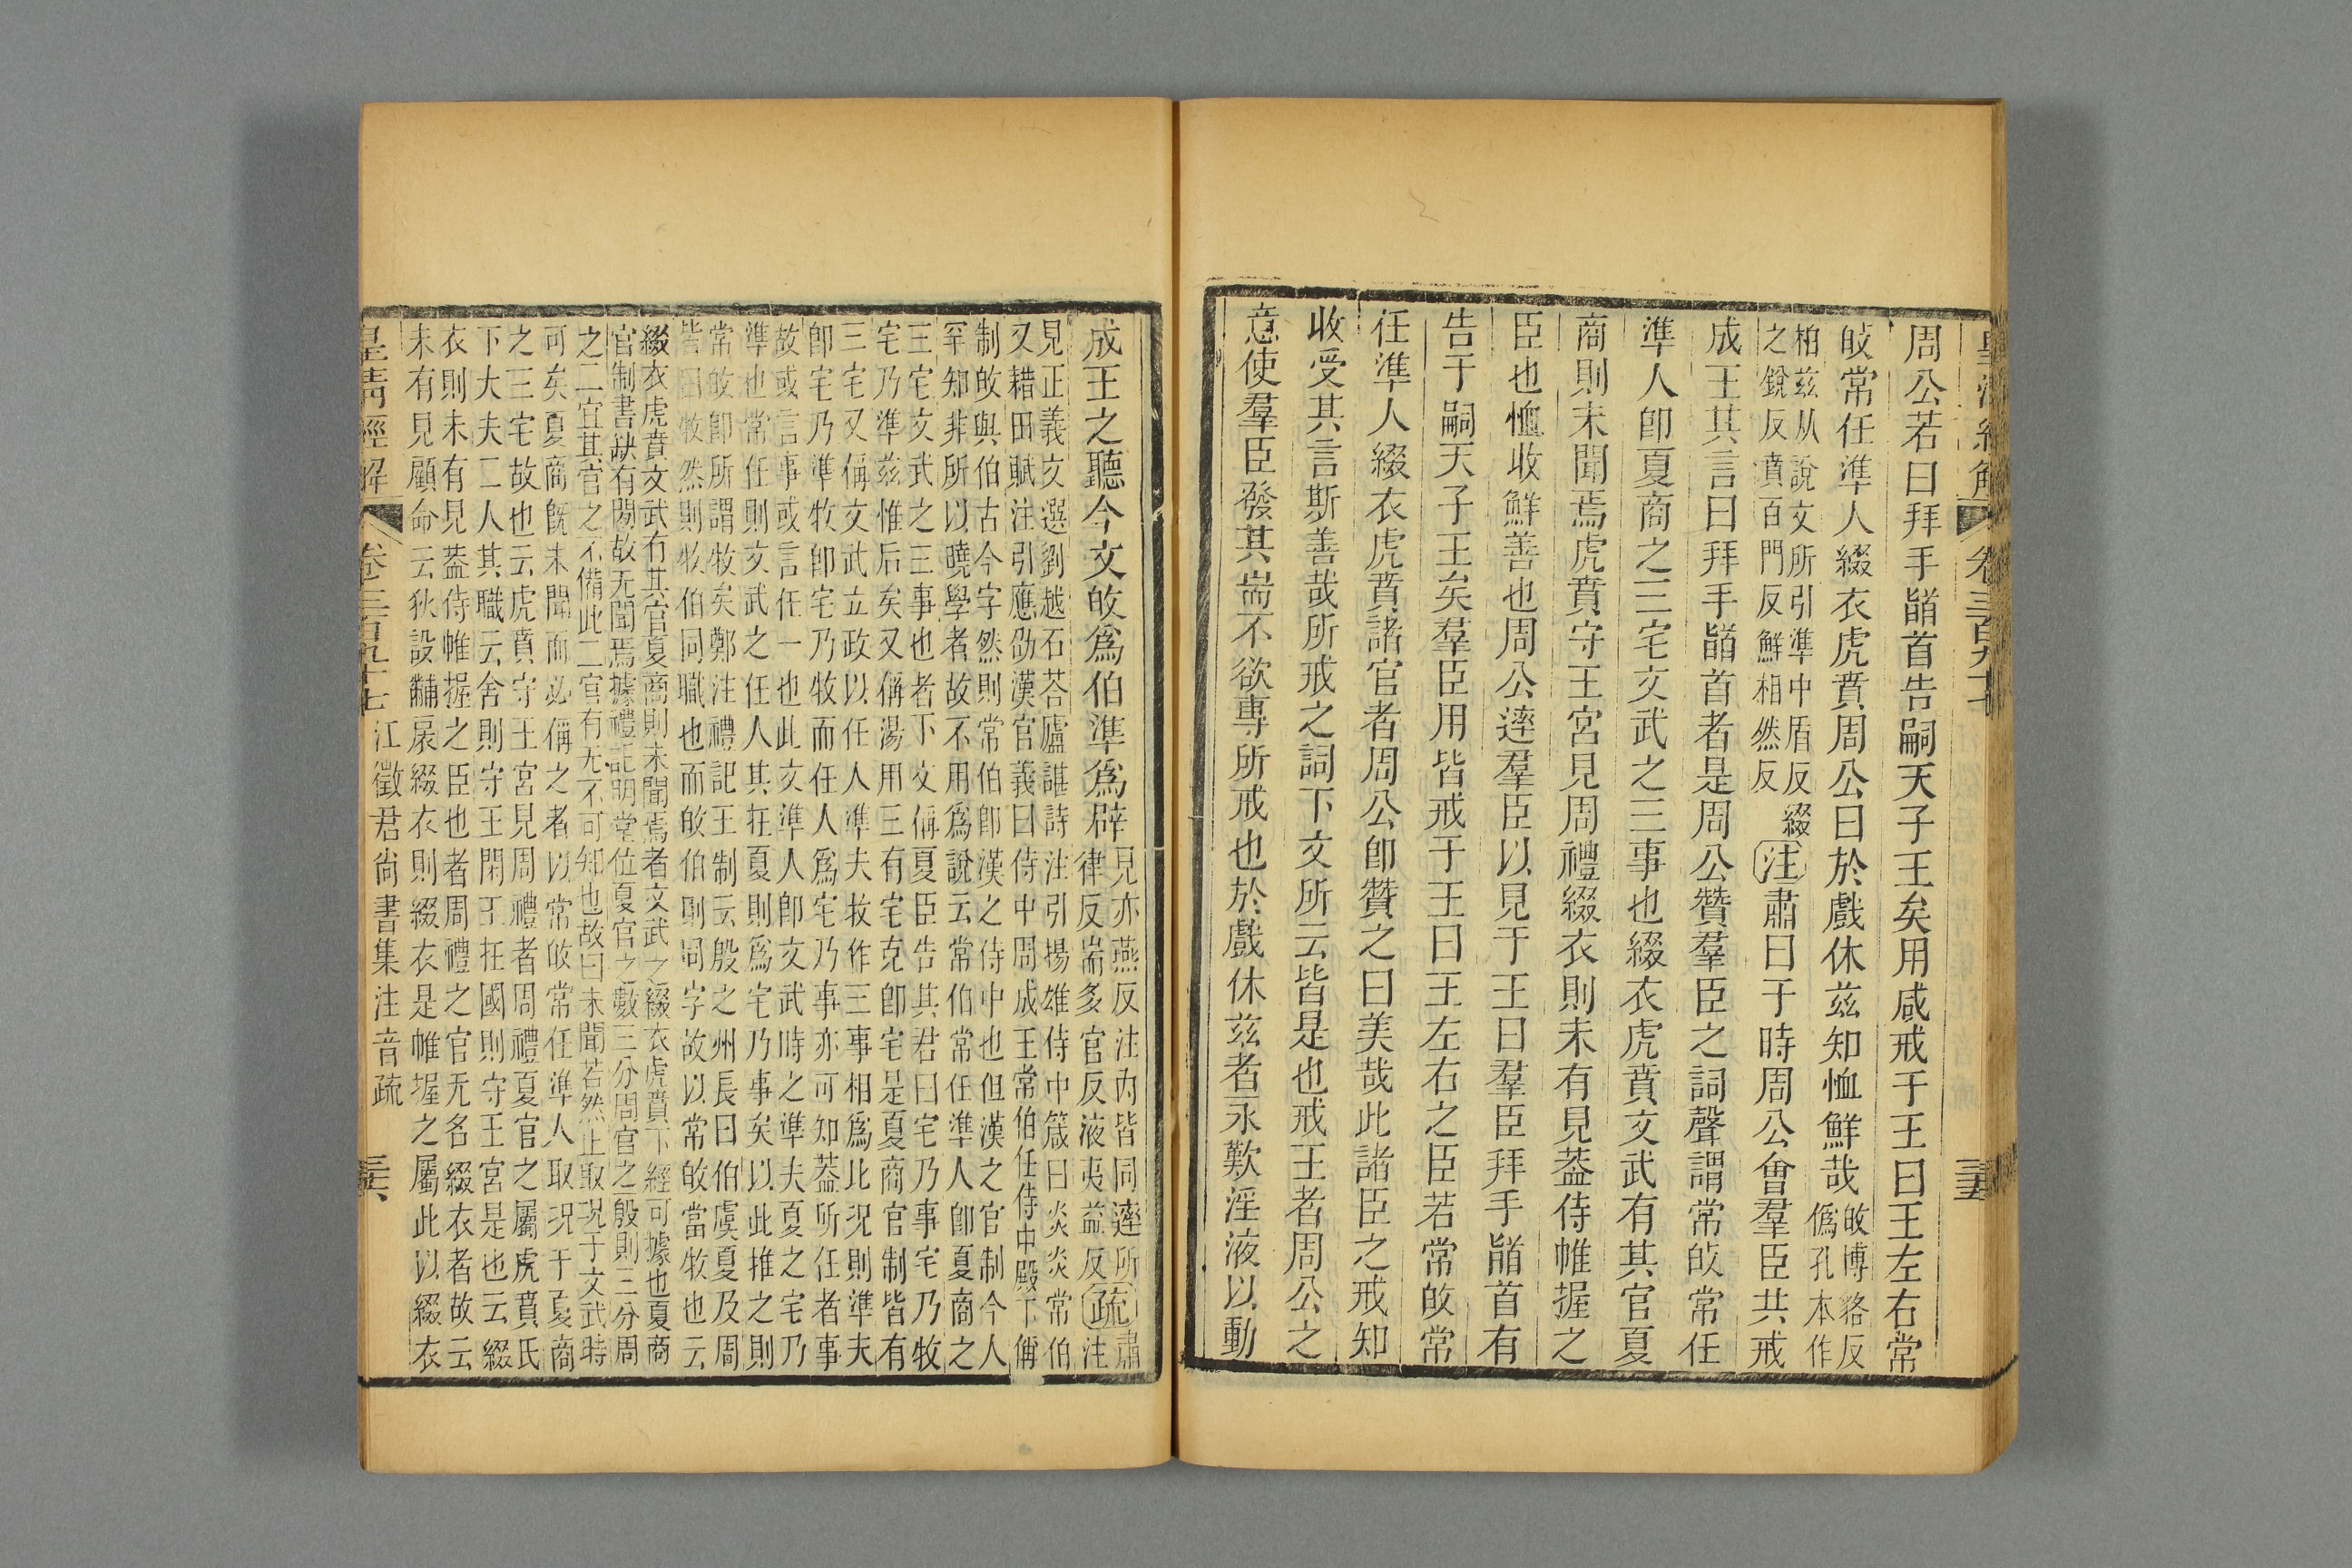 皇清經解 卷三百九十七 三五
周公若曰拜手𩒨首告嗣天子王矣用咸戒于王曰王左右常
㪍常任準人綴衣虎賁周公曰於戲休茲知恤鮮哉
㪍博輅反
僞孔本作
柏茲从說文所引準中盾反綴
之銳反賁百門反鮮相然反
注肅曰于時周公會羣臣共戒
成王其言曰拜手𩒨首者是周公贊羣臣之詞聲謂常㪍常任
準人卽夏商之三宅文武之三事也綴衣虎賁文武有其官夏
商則未聞焉虎賁守王宮見周禮綴衣則未有見葢侍帷握之
臣也恤收鮮善也周公達羣臣以見于王曰羣臣拜手𩒨首有
告于嗣天子王矣羣臣用皆戒于王曰王左右之臣若常㪍常
任準人綴衣虎賁諸官者周公卽贊之曰美哉此諸臣之戒知
收受其言斯善哉所戒之詞下文所云皆是也戒王者周公之
意使羣臣發其耑不欲專所戒也於戲休茲者永歎淫液以動
成王之聽今文㪍爲伯準爲辟
見亦燕反注內皆同達所
律反耑多官反液夷益反
疏
肅
注
見正義文選劉越石荅廬諶詩注引揚雄侍中箴曰炎炎常伯
又耤田賦注引應劭漢官義曰侍中周成王常伯任侍中殿下偁
制㪍與伯古今字然則常伯卽漢之侍中也但漢之官制今人
罕知非所以曉學者故不用爲說云常伯常任準人卽夏商之
三宅文武之三事也者下文偁夏臣告其君曰宅乃事宅乃牧
宅乃準茲惟后矣又偁湯用三有宅克卽宅是夏商官制皆有
三宅又偁文武立政以任人準夫牧作三事相爲比況則準夫
卽宅乃準牧卽宅乃牧而任人爲宅乃事亦可知葢所任者事
故或言事或言任一也此文準人卽文武時之準夫夏之宅乃
準也常任則文武之任人其在夏則爲宅乃事矣以此推之則
常㪍卽所謂牧矣鄭注禮記王制云殷之州長曰伯虞夏及周
皆曰牧然則牧伯同職也而㪍伯則同字故以常㪍當牧也云
綴衣虎賁文武有其官夏商則未聞焉者文武之綴衣虎賁下經可據也夏商
官制書缺有閒故无聞焉據禮記明堂位夏官之數三分周官之一殷則三分周
之二宜其官之不備此二官有无不可知也故曰未聞若然止取況于文武時
可矣夏商旣未聞而必偁之者以常㪍常任準人取況于夏商
之三宅故也云虎賁守王宮見周禮者周禮夏官之屬虎賁氏
下大夫二人其職云舍則守王閑王在國則守王宮是也云綴
衣則未有見葢侍帷握之臣也者周禮之官无名綴衣者故云
未有見顧命云狄設黼扆綴衣則綴衣是帷握之屬此以綴衣
皇清經解 卷三百九十七 江徵君尚書集注音疏 三六